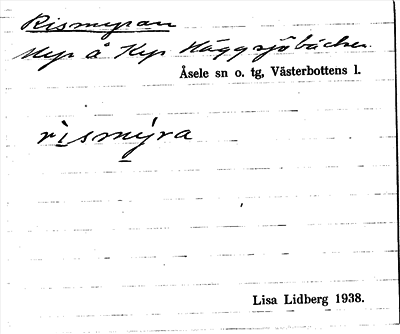 Rismyran
Myr å Kyr Häggsjöbäcken
Åsele sn o. tg, Västerbottens l.
rismýra
Lisa Lidberg 1938.